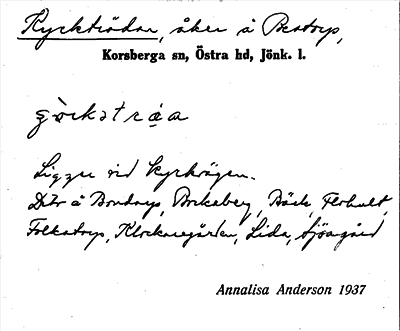 Kyrkträdan, åker å Bertorp,
Korsberga sn, Östra hd, Jönk. l.
Ligger vid kyrkvägen.
Dito å Bondarp, Brskaberg, Bäck, Flohult,
Folkatorp, Klockaregården, Lida, Sjöagärd
Annalisa Anderson 1937